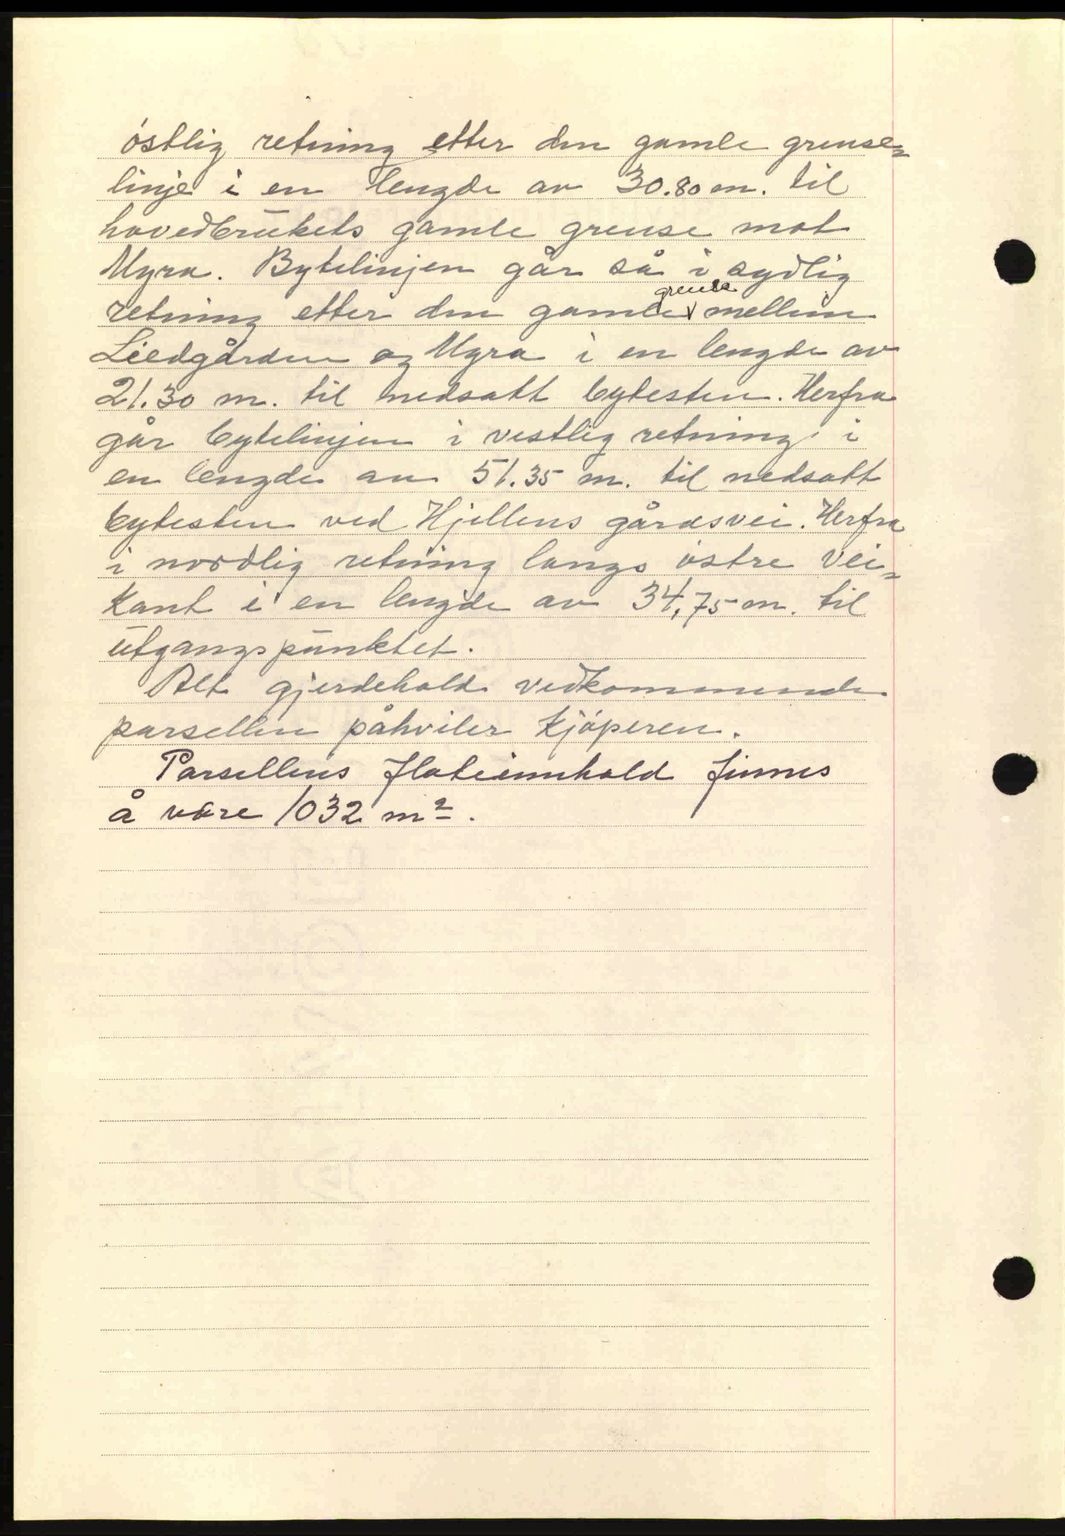 östlig retning etter den gamle grense=
linje i en lengde av 30.80 m. til
hovedbrukets gamle grense mot
Myra. Bytelinjen går så i sydlig
retning etter den gamle grense mellem
Liedgården og Myra i en lengde av
21.30 m. til nedsatt bytesten. Herfra
går bytelinjen i vestlig retning i
en lengde av 51.35 m. til nedsatt
bytesten ved Hjellens gårdsvei. Herfra
i nordlig retning langs östre vei=
kant i en lengde av 34,75 m. til
utgangspunktet.
Alt gjerdehold vedkommende
parsellen påhviler kjöperen.
Parsellens flateinnhold finnes
å være 1032 m².